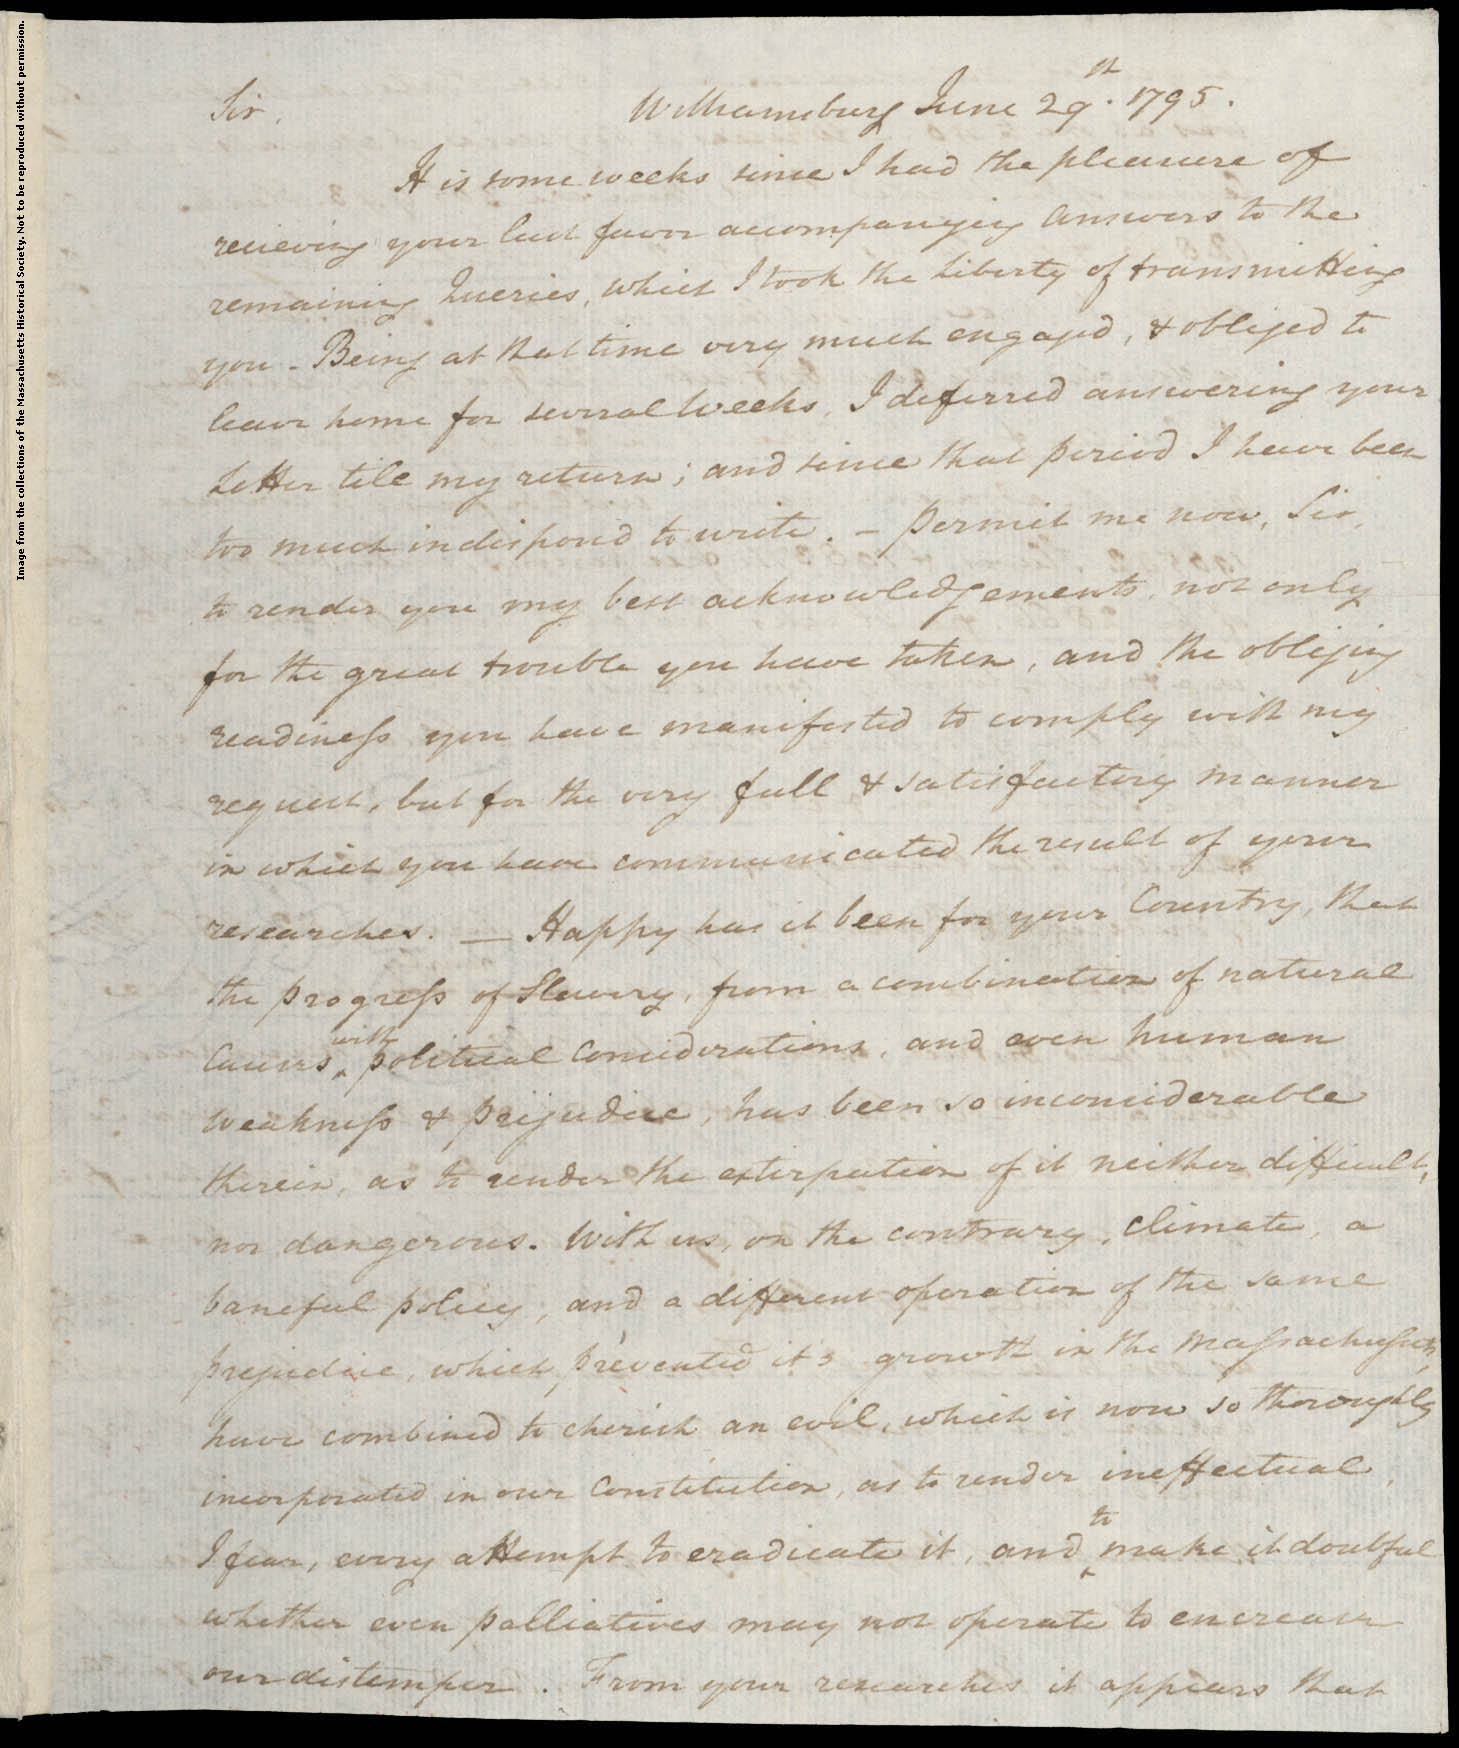 Image from the collections of the Massachusetts Historical Society. Not to be reproduced without permission.
Sir, Williamsburg June 29th. 1795.
It is some weeks since I had the pleasure of
recieving your last favor accompanying answers to the
remaining Queries, which I took the Liberty of transmitting
you - Being at that time very much engaged, & obliged to
leave home for several Weeks, I deferred answering your
Letter till my return; and since that period I have been
too much indispos'd to write. - Permit me now, Sir,
to render you my best acknowledgements, not only
for the great trouble you have taken, and the obliging
readiness you have manifested to comply with my
request, but for the very full & satisfactory manner
in which you have communicated the result of your
researches. — Happy has it been for your Country, that
the progress of Slavery, from a combination of natural
Causes with political Considerations, and even human
Weakness & prejudice, has been so inconsiderable
therein, as to render the extirpation of it neither difficult,
nor dangerous. With us, on the contrary, climate, a
baneful policy, and a different operation of the same
prejudice, which prevented it's growth in the Massachusetts,
have combined to cherish an evil, which is now so thoroughly
incorporated in our Constitution, as to render ineffectual,
I fear, every attempt to eradicate it, and to make it doubtful
whether even palliatives may not operate to encrease
our distemper. From your researches it appears that